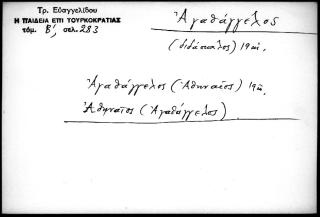 Τρ. Εὐαγγελίδου
Η ΠΑΙΔΕΙΑ ΕΠΙ ΤΟΥΡΚΟΚΡΑΤΙΑΣ
τόμ. Β', σελ. 283
Ἀγαθάγγελος
(διδάσκαλος) 19 αἰ.
Ἀγαθάγγελος (Ἀθηναῖος) 19 αἰ.
Ἀθηναῖος (Ἀγαθάγγελος)